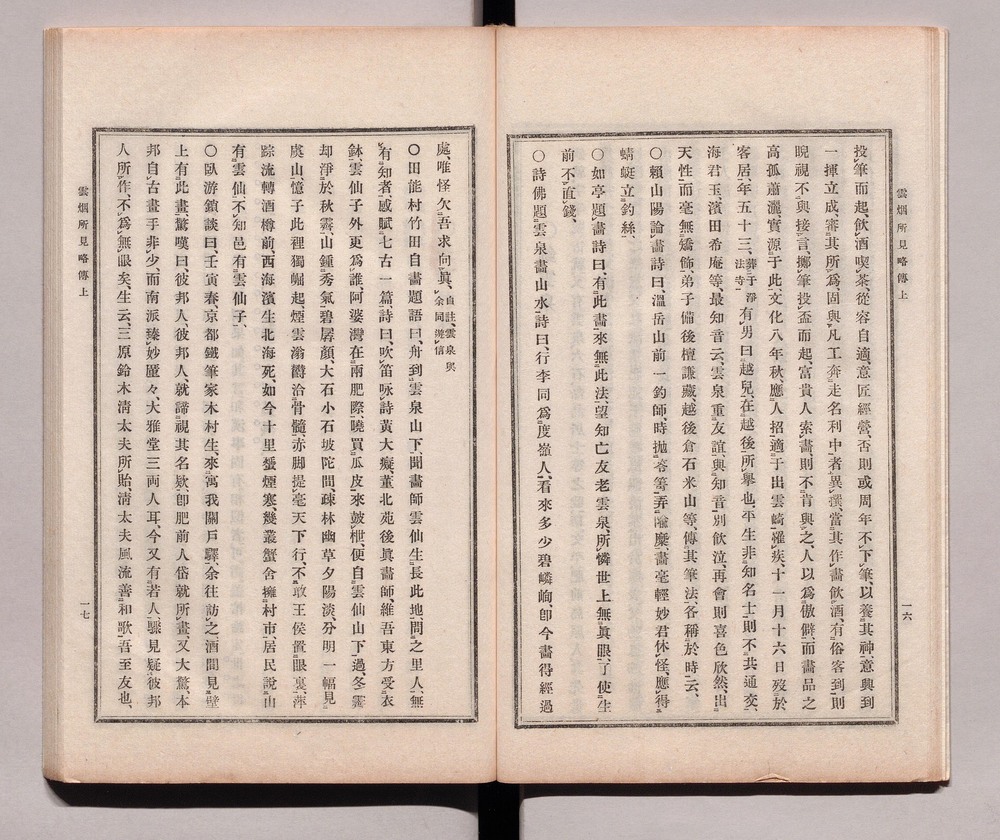 雲烟所見略傳上
一六
投筆而起、飮酒喫茶、從容自適、意匠經營、否則或周年不下筆、以養其神、意興到
一揮立成、審其所爲、固與凡工奔走名利中者異撰、當其作畫飮酒、有俗客到則
睨視不與接言、擲筆投盃而起、富貴人索畫、則不肯與之、人以爲傲僻、而畫品之
高孤蕭灑實源于此、文化八年秋應人招適于出雲崎、罹疾、十一月十六日歿於
客居、年五十三、葬于淨法寺有男曰越兒、在越後所擧也、平生非知名士則不共通交、
海君玉、濱田希庵等、最知音云、雲泉重友誼、與知音別飮泣、再會則喜色欣然、出
天性而毫無矯飾、弟子備後檀謙藏越後倉石米山等、傳其筆法、各稱於時云、
〇賴山陽論畫詩曰、溫岳山前一釣師時抛笭箵弄隃糜、畫毫輕妙君休怪、應得
蜻蜓立釣絲、
〇如亭題畫詩曰、有此畫來無此法、望知亡友老雲泉、所憐世上無眞眼、了使生
前不直錢、
〇詩佛題雲泉畫山水詩曰、行李同爲度嶺人、看來多少碧嶙峋、卽今畫得經過
處、唯怪欠吾求向眞、自註、雲泉與余同遊信
〇田能村竹田自畫題語曰、舟到雲泉山下、聞畫師雲仙生長此地、問之里人、無
有知者、感賦七古一篇、詩曰、吹笛咏詩黃大癡、董北苑後眞畫師、維吾東方受衣
鉢、雲仙子外更爲誰、阿婆灣在雨肥際、曉買瓜皮來皷枻、便自雲仙山下過、冬霽
却淨於秋霽、山鍾秀氣碧孱顏、大石小石坡陀間、疎林幽草夕陽淡、分明一幅見
虞山、憶子此裡獨崛起、煙雲滃欝洽骨髓、赤脚提毫天下行、不敢王侯置眼裏、萍
踪流轉酒樽前、西海濱生北海死、如今十里蜑煙寒、幾叢蟹舍擁村市、居民說山
有雲仙、不知邑有雲仙子、
〇臥游鎖談曰、壬寅春、京都鐵筆家木村生、來寓我關戶驛、余往訪之酒間見壁
上有此畫、驚嘆曰、彼邦人、彼邦人、就諦視其名欵、卽肥前人岱就所畫、又大驚、本
邦自古畫手非少、而南派臻妙厪々、大雅堂三兩人耳、今又有若人、驟見疑彼邦
人所作、不爲無眼矣、生云、三原鈴木淸太夫所貽、淸太夫風流善和歌、吾至友也、
雲烟所見略傳上
一七